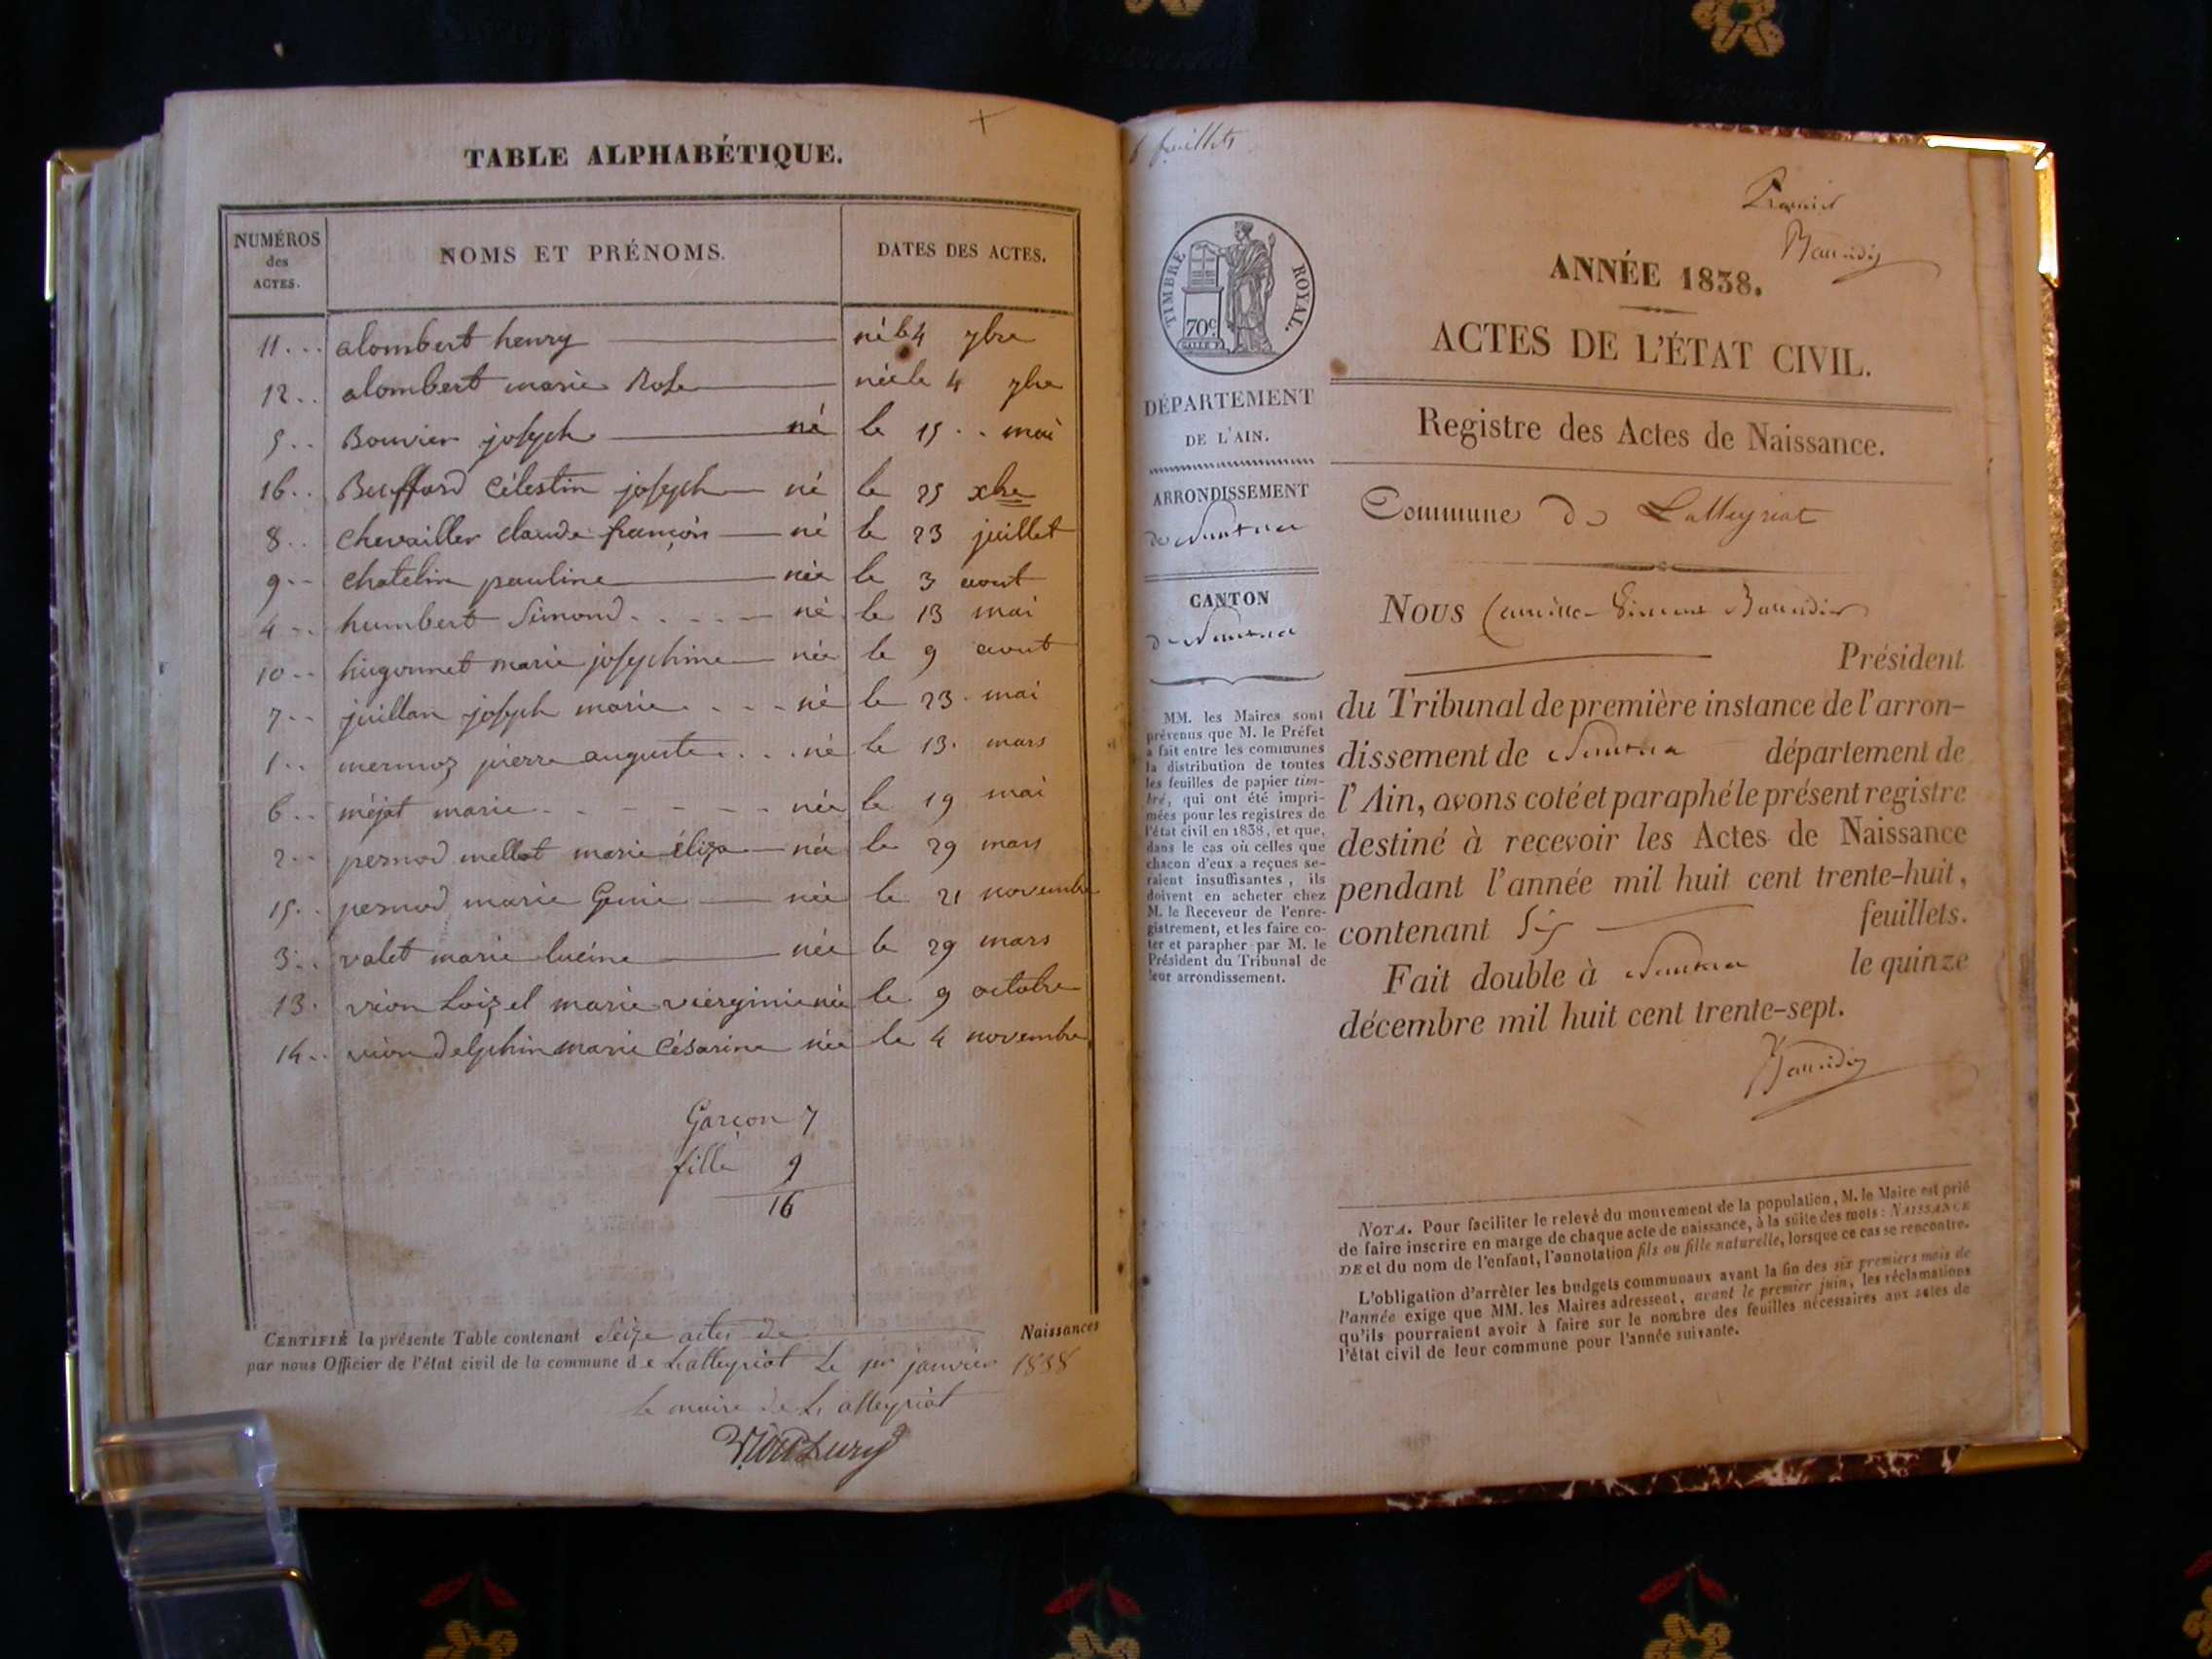 TABLE ALPHABÉTIQUE.
NUMÉROS des ACTES.
NOMS ET PRÉNOMS.
DATES DES ACTES.
11... alombert henry né le 4 7bre
12.. alombert marie Rose née le 4 7bre
5.. Bouvier joseph né le 15.. mai
16.. Buffard Célestin joseph né le 25 xbre
8.. Chevailler claude françois né le 23 juillet
9.. Chatelin pauline née le 3 aout
4.. humbert Simond né le 13 mai
10.. hugonnet marie josephine née le 9 aout
7.. juillan joseph marie né le 23. mai
1.. mermoz pierre auguste né le 13. mars
6.. méjat marie née le 19 mai
2.. pernod mellot marie éliza née le 29 mars
15.. pernod marie Génie née le 21 novembre
3.. valet marie lucine née le 29 mars
13. vion Loizel marie vièrginie née le 9 octobre
14.. vion delphin marie Césarine née le 4 novembre
Garçon 7
fille 9
16
CERTIFIÉ la présente Table contenant Seize actes de Naissances
par nous Officier de l'état civil de la commune de Lalleyriat le 1er janvier 1838
le maire de Lalleyriat
6 feuillets
Premier
Baudin
TIMBRE ROYAL.
70c
ANNÉE 1838.
ACTES DE L'ÉTAT CIVIL.
Registre des Actes de Naissance.
Commune de Lalleyriat
DÉPARTEMENT
DE L'AIN.
ARRONDISSEMENT
de Nantua
CANTON
de Nantua
MM. les Maires sont
prévenus que M. le Préfet
a fait entre les communes
la distribution de toutes
les feuilles de papier tim-
bré, qui ont été impri-
mées pour les registres de
l'état civil en 1838, et que,
dans le cas où celles que
chacun d'eux a reçues se-
raient insuffisantes, ils
doivent en acheter chez
M. le Receveur de l'enre-
gistrement, et les faire co-
ter et parapher par M. le
Président du Tribunal de
leur arrondissement.
Nous Camille
Président
du Tribunal de première instance de l'arron-
dissement de Nantua département de
l'Ain, avons coté et paraphé le présent registre
destiné à recevoir les Actes de Naissance
pendant l'année mil huit cent trente-huit,
contenant Six feuillets.
Fait double à Nantua le quinze
décembre mil huit cent trente-sept.
NOTA. Pour faciliter le relevé du mouvement de la population, M. le Maire est prié
de faire inscrire en marge de chaque acte de naissance, à la suite des mots : NAISSANCE
DE et du nom de l'enfant, l'annotation fils ou fille naturelle, lorsque ce cas se rencontre.
L'obligation d'arrêter les budgets communaux avant la fin des six premiers mois de
l'année exige que MM. les Maires adressent, avant le premier juin, les réclamations
qu'ils pourraient avoir à faire sur le nombre des feuilles nécessaires aux actes de
l'état civil de leur commune pour l'année suivante.